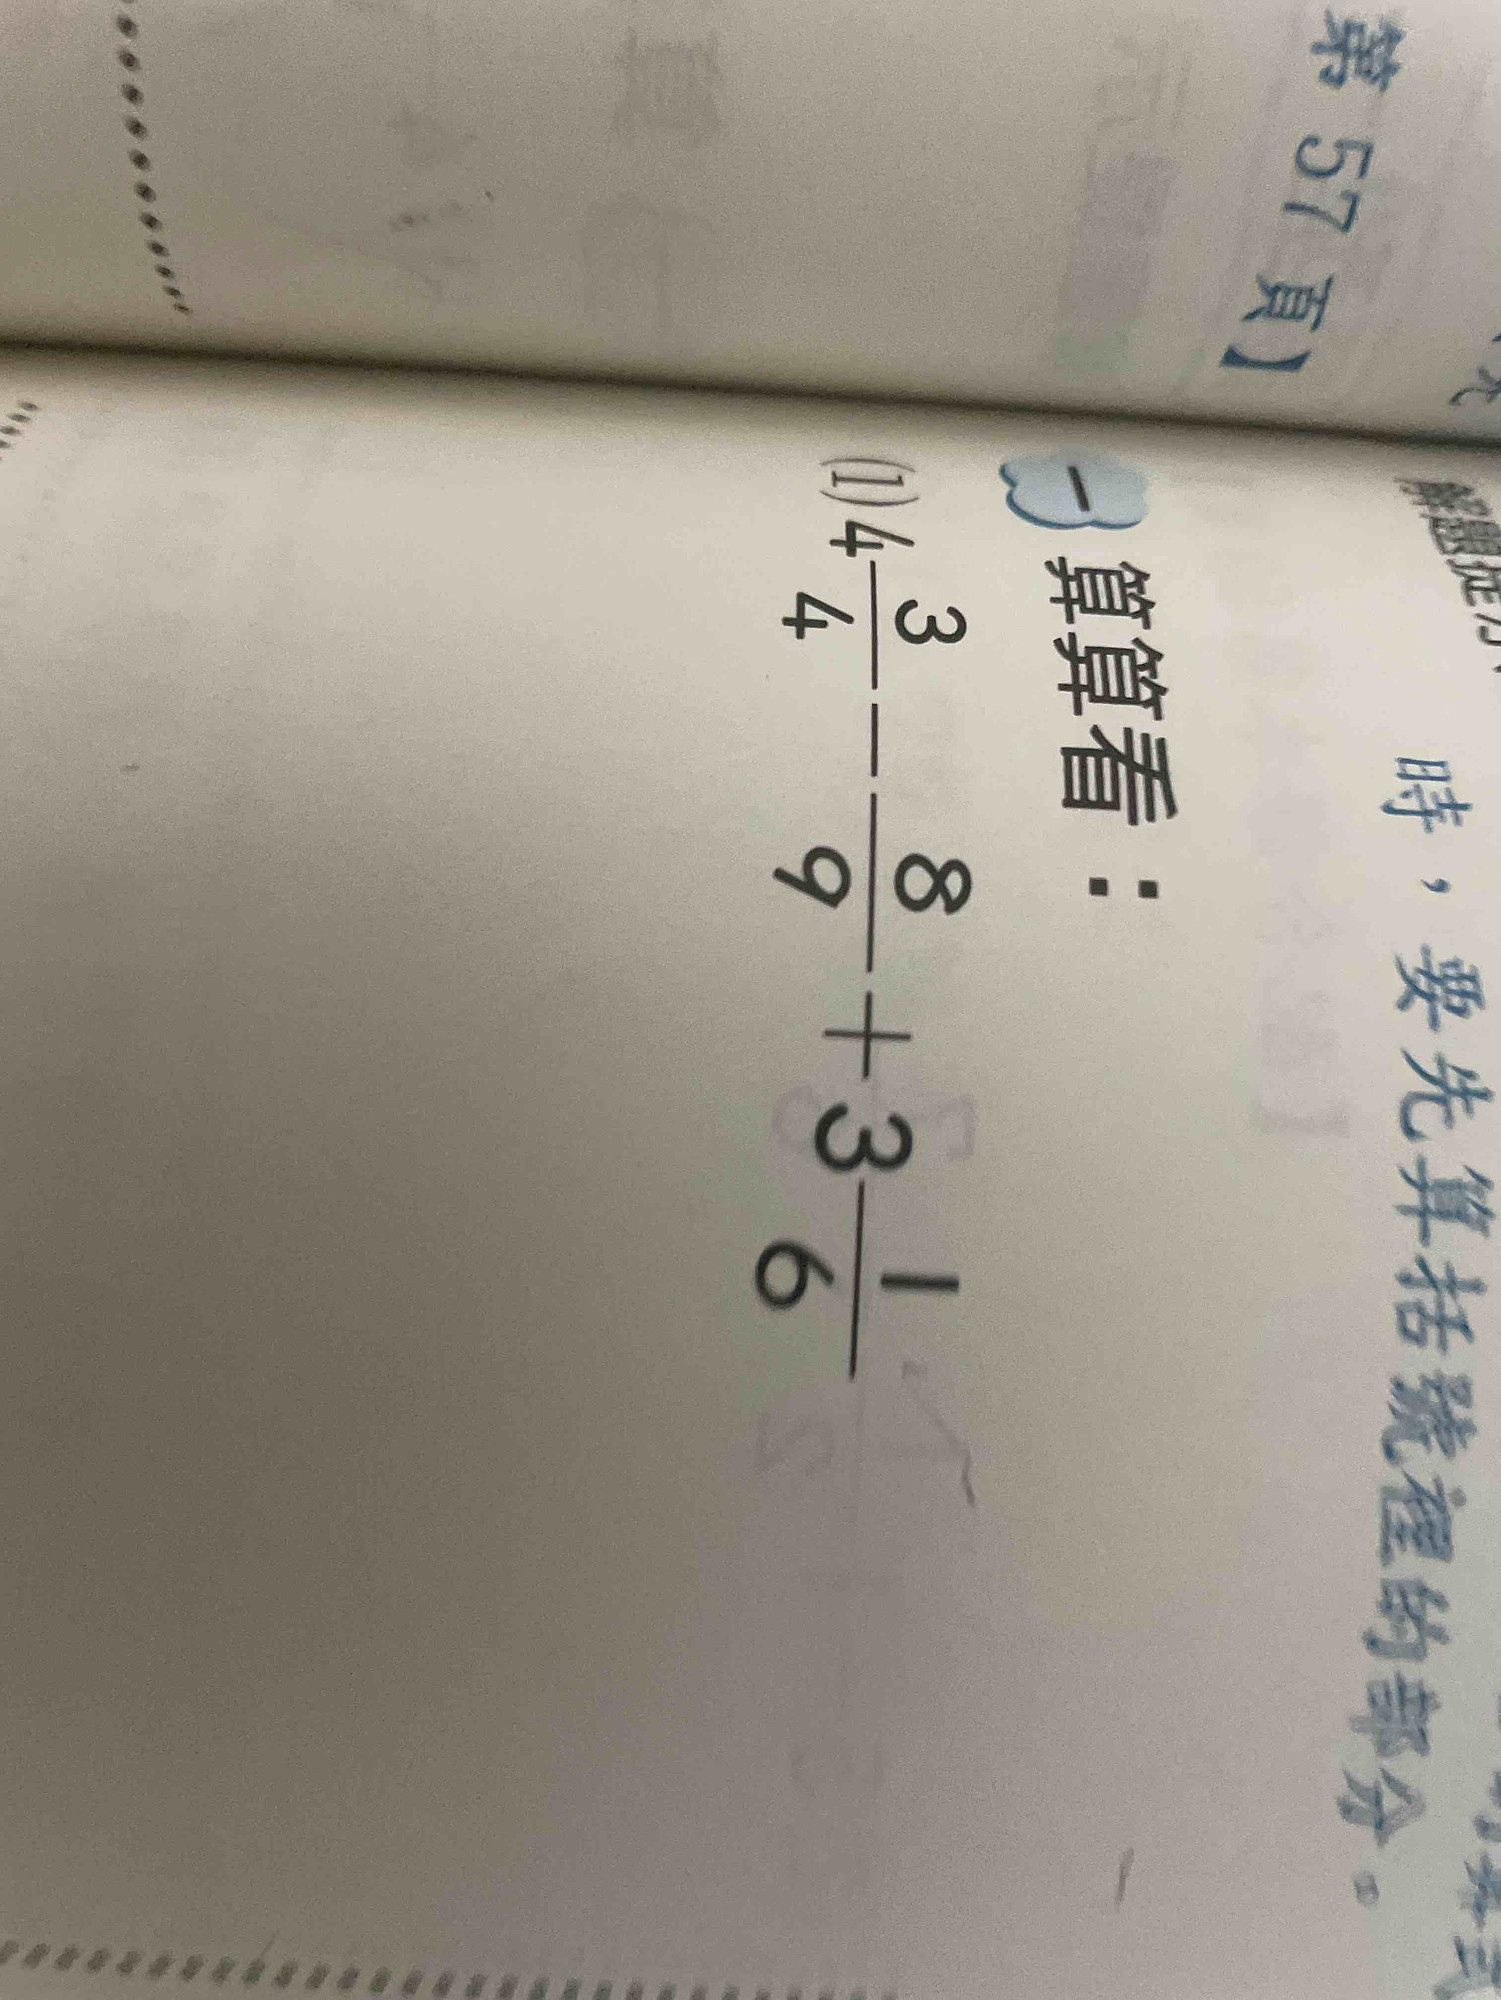 第 57 頁】
時，要先算括號裡的部分。
一 算算看：
(1) 4 3/4 － 8/9 ＋ 3 1/6